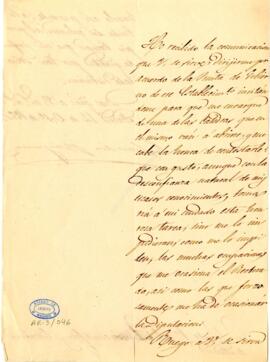 He recibido la comunicacion
que V. se sirve dirigirme por
acuerdo de la Junta de Gobier
no de ese Establecimto invitan
dome para que me encargue
de una de las Catedras que en
el mismo van á abrirse, y me
cabe la honra de contestarle
que con gusto, aunque con la
desconfianza natural de mis
escasos conocimientos, toma
ria á mi cuidado esta hon
rosa tarea, sino me lo im
pidieran, como me lo impi
den, las muchas ocupaciones
que me ocasiona el
asi como las que forzo
samente me ha de ocasionar
la Diputacion.
Ruego á V. se sirva
AR-3/046